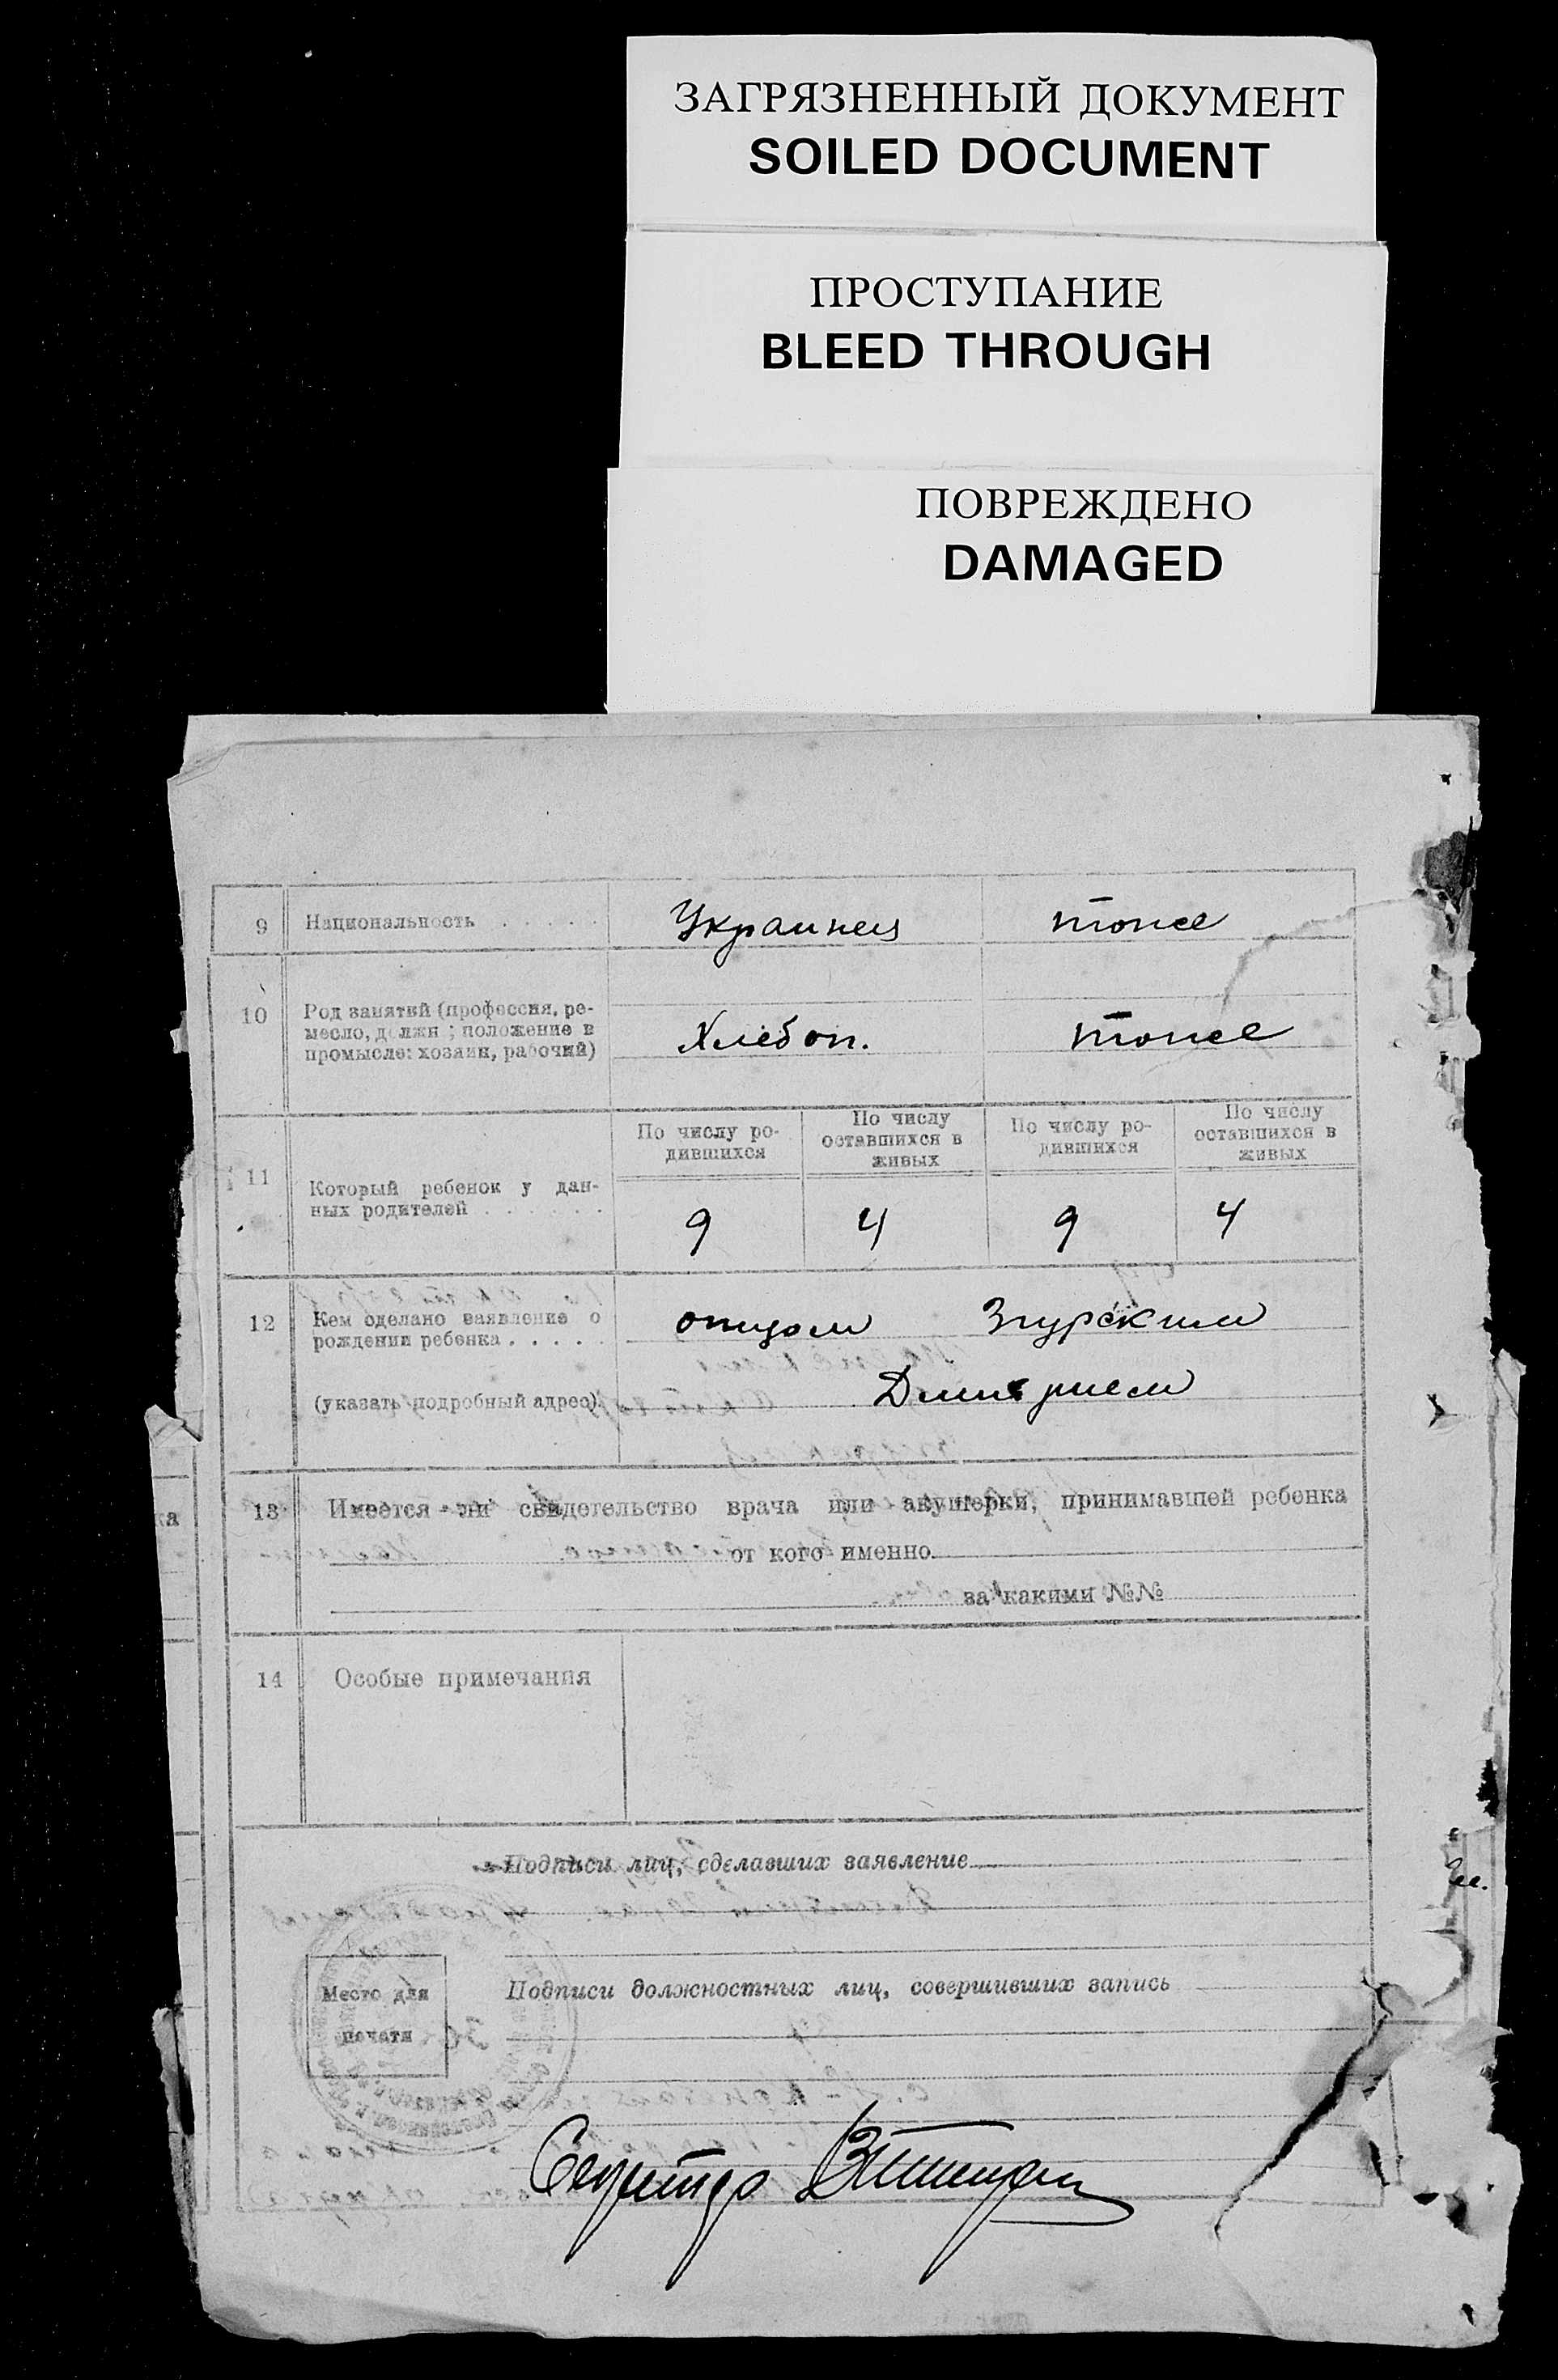 ЗАГРЯЗНЕННЫЙ ДОКУМЕНТ
SOILED DOCUMENT
ПРОСТУПАНИЕ
BLEED THROUGH
ПОВРЕЖДЕНО
DAMAGED
9 Национальность . . . . . Украинец тоже
10 Род занятий (профессия, ре-
месло, должн; положение в
промысле: хозяин, рабочий) Хлебоп. тоже
По числу ро-
дившихся
По числу
оставшихся в
живых
По числу ро-
дившихся
По числу
оставшихся в
живых
11 Который ребенок у дан-
ных родителей . . . . . . 9 4 9 4
12 Кем сделано заявление о
рождении ребенка . . . . . отцом Згурским
(указать подробный адрес) Дмитрием
13 Имеется ли свидетельство врача или акушерки, принимавшей ребенка
от кого именно
за какими №№
14 Особые примечания
Подписи лиц, сделавших заявление
Место для
печати
Подписи должностных лиц, совершивших запись
ка